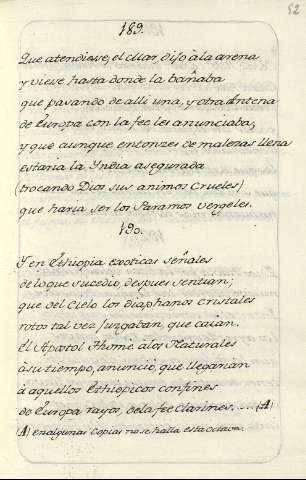 52
189.
Que atendiese, el Mar, dijo à la arena
y viese hasta donde la bañaba
que pasando de alli una, y otra Antena
de Europa con la fee les anunciaba;
y que aunque entonzes de malezas llena
estaria la Yndia asegurada
(trocando Dios sus animos Crueles)
que haria ser los Paramos vergeles.
190.
Y en Ethiopia exoticas señales
de lo que sucedio, despues sentian;
que del Cielo los diaphanos cristales
rotos tal vez juzgaban, que caian.
El Apostol Thomè à los Naturales
à su tiempo, anunciò, que llegarian
à aquellos Ethiopicos confines
de Europa rayos, de la fee Clarines. .... (A)
(A) en algunas Copias no se halla esta octava.